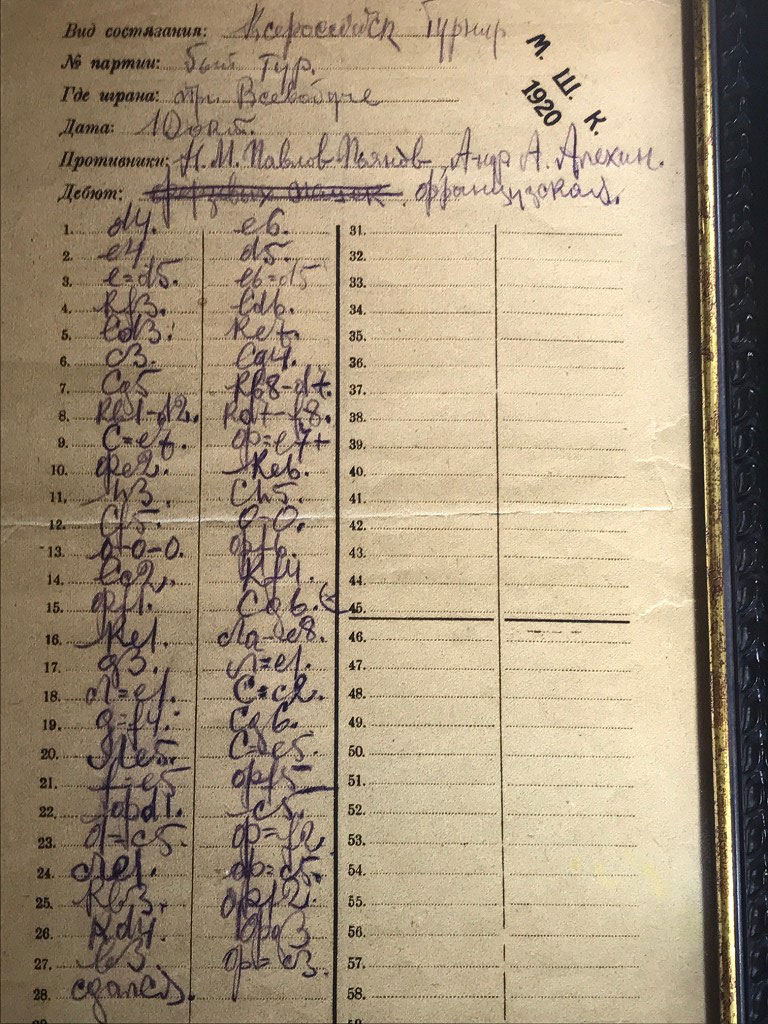 Вид состязания: Турнир
М. Ш. К.
1920
№ партии: Тур.
Где играна: Всевобуче
Дата: 10 окт.
Противники: Н. М. Павлов-Пьянов Андр А. Алехин.
Дебют: французская.
1. d4. e6.
2. e4 d5.
3. e=d5. e6=d5
4. Kf3. Cd6.
5. Cd3. Ke7.
6. c3. Cg4.
7. Cg5 Kb8-d7.
8. Kb1-d2. Kd7-f8.
9. C=e7. ф=e7+
10. Фe2. Ke6.
11. h3. Ch5.
12. Cf5. 0-0.
13. 0-0-0. фf6.
14. Kf4.
15. Фf1. Cg6.
16. Ke1. Лa-e8.
17. g3. Л=e1.
18. Л=e1. C=c2.
19. g=f4. Cg6.
20. Лe5. C=e5.
21. f=e5 фf5
22. фd1. c5.
23. d=c5. ф=f2
24. Лe1. ф=c5.
25. Kb3. фf2.
26. Kd4. фg3
27. b3. ф=c3.
28. сдался.
31.
32.
33.
34.
35.
36.
37.
38.
39.
40.
41.
42.
43.
44.
45.
46.
47.
48.
49.
50.
51.
52.
53.
54.
55.
56.
57.
58.